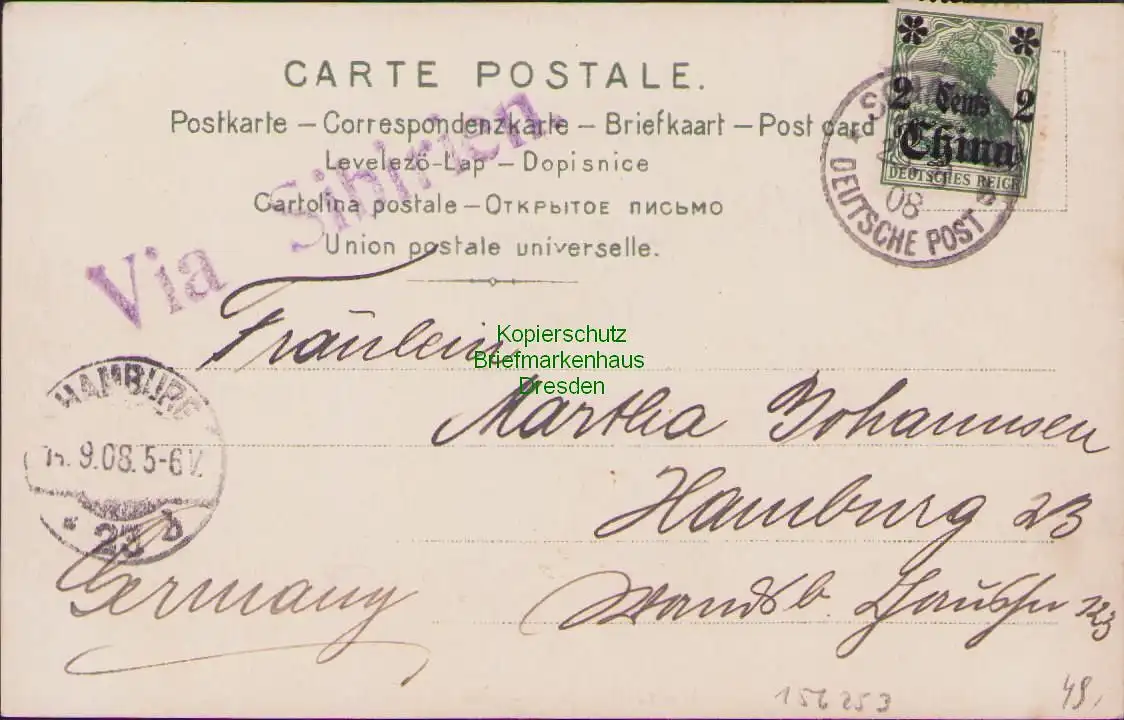 CARTE POSTALE.
Postkarte – Correspondenzkarte – Briefkaart – Post card
Levelező-Lap – Dopisnice
Cartolina postale – Открытое письмо
Union postale universelle.
Via Sibirien.
2 Cents 2
China
DEUTSCHES REICH
08
DEUTSCHE POST
Kopierschutz
Briefmarkenhaus
Dresden
Fräulein
Martha Johannsen
Hamburg 23
Wandsb.
HAMBURG
9.08.5-6V.
* 23 b
Germany
156253
49,